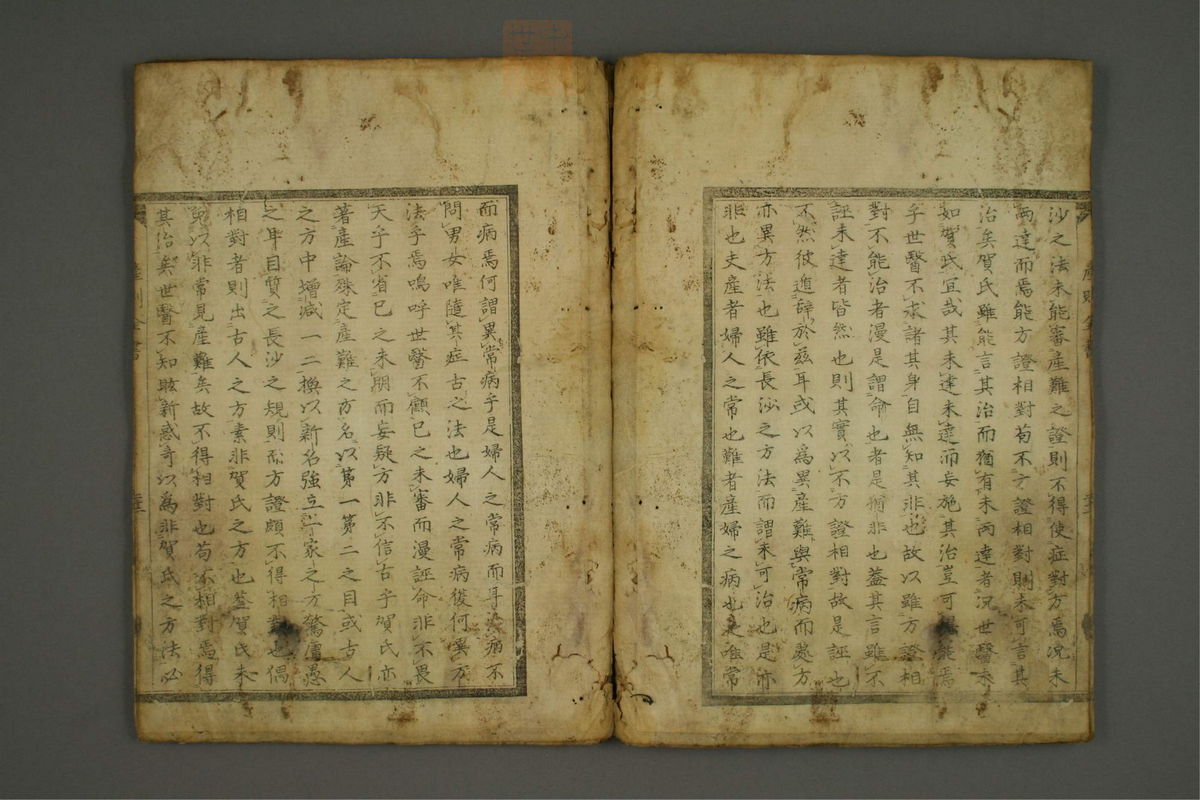 沙之法未能審産難之證則不得使症對方焉况未
兩達而焉能方證相對苟不方證相對則未可言其
治矣賀氏雖能言其治而猶有未兩達者况世醫未
如賀氏宜哉其未達未達而妄施其治豈可得能焉
乎世醫不求諸其身自無知其非也故以雖方證相
對不能治者漫是謂命也者是猶非也蓋其言雖不
誣未達者皆然也則其實以不方證相對故是誣也
不然彼遁辞於茲耳或以爲異産難與常病而處方
亦異方法也雖依長沙之方法而謂未可治也是亦
非也夫産者婦人之常也難者産婦之病也是唯常
而病焉何謂異常病乎是婦人之常病而耳疾病不
問男女唯隨其症古之法也婦人之常病獲何異方
法乎焉嗚呼世醫不顧已之未審而漫誣命非不畏
天乎不省已之未期而妄疑方非不信古乎賀氏亦
著産論殊定産難之方名以第一第二之目或古人
之方中增減一二換以新名強立一家之方驚庸愚
之耳目質之長沙之規則而方證頗不得相對也偶
相對者則出古人之方素非賀氏之方也蓋賀氏未
免以非常見産難矣故不得相對也苟不相對焉得
其治矣世醫不知眩新惑奇以爲非賀氏之方法必
産 全書